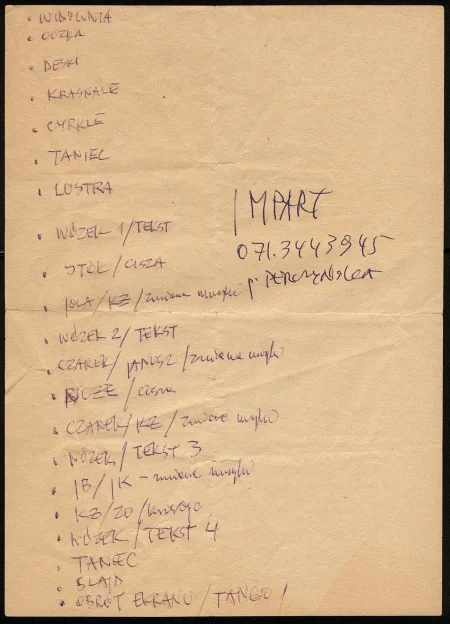 • WIDOWNIA
•
• DESKI
• KRASNALE
• CYRKLE
• TANIEC
• LUSTRA
IMPART
• WÓZEK 1/TEKST
071.3443945
• STÓŁ/CISZA
p.
• JOLA/KZ/zmiana muzyki
• WÓZEK 2/TEKST
• CZAREK/JANUSZ/zmiana muzyki
• /cisza
• CZAREK/KZ/zmiana muzyki
• WÓZEK/TEKST 3
• JB/JK - zmiana muzyki
• KZ/ZO/
• WÓZEK/TEKST 4
• TANIEC
• SLAJD
• OBRÓT EKRANU/TANGO/